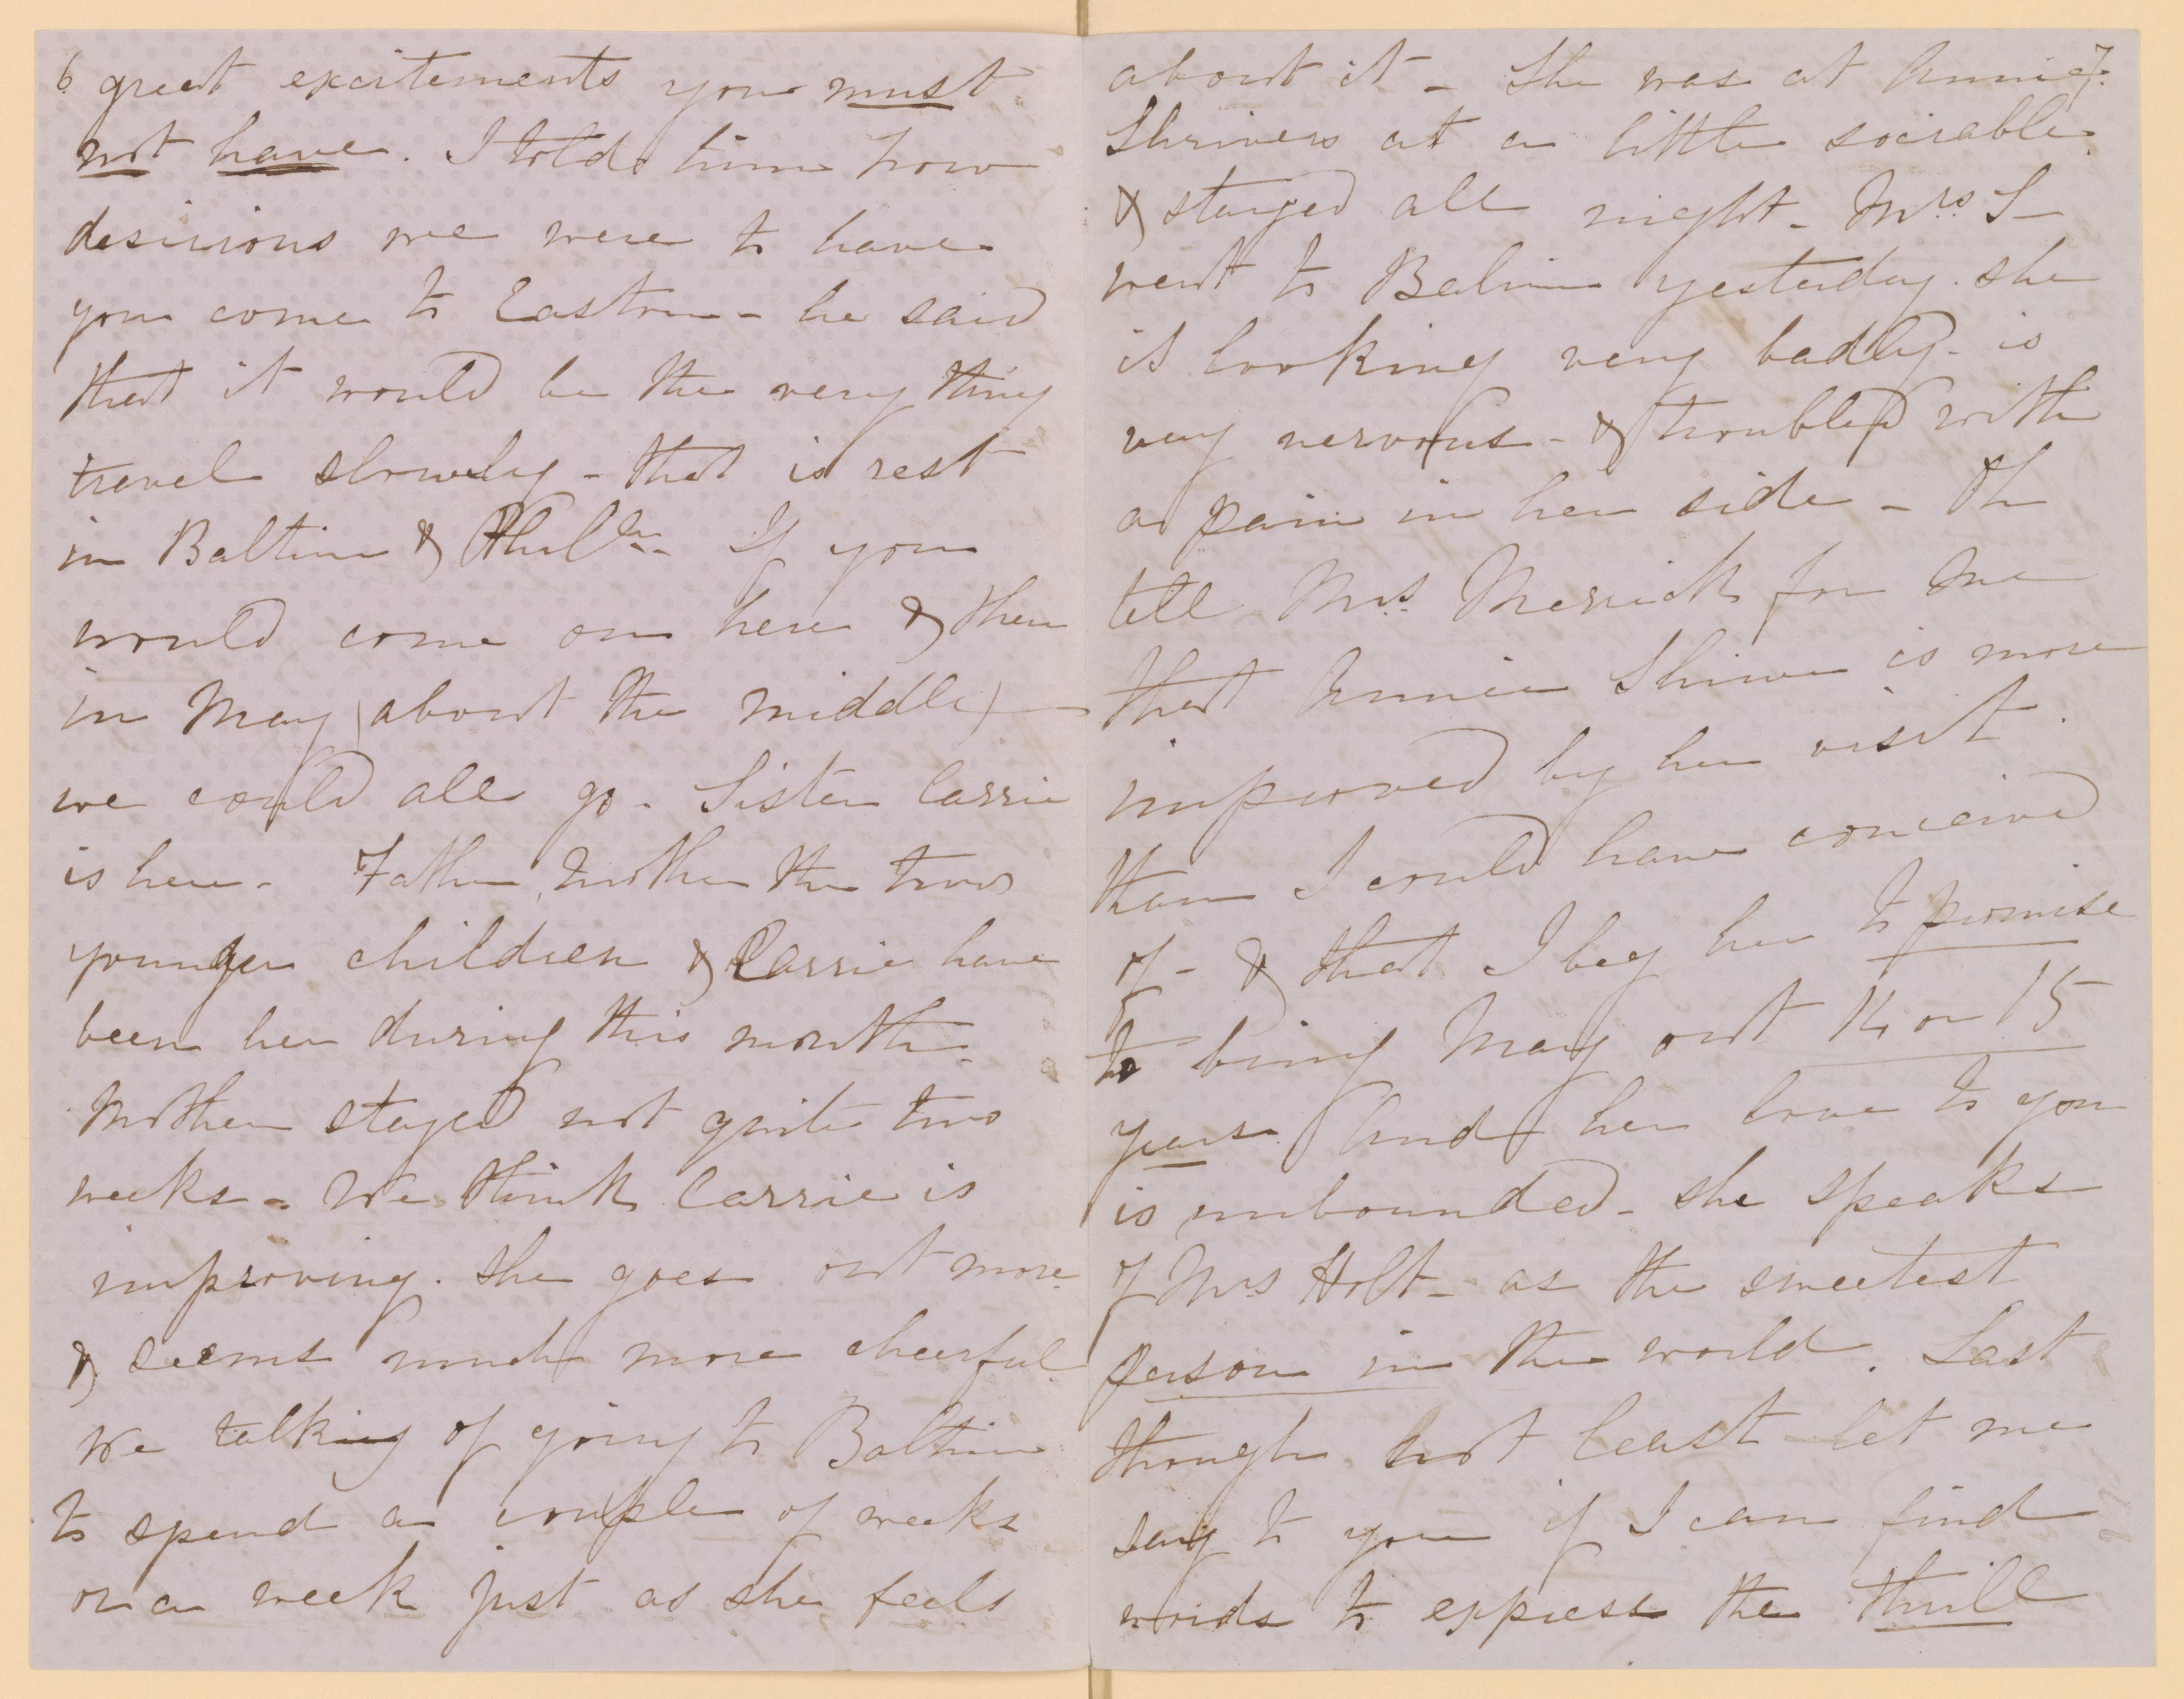 6
great excitements you must
not have. I told him how
desirious we were to have
you come to Easton - he said
that it would be the very thing
travel slowly - that is rest
in Baltim & Phila. If you
would come on here & then
in May (about the middle)
we could all go - Sister Carrie
is here - Father, Mother the two
younger children & Carrie have
been here during this month -
Mother stayed not quite two
weeks - We think Carrie is
improving. She goes out more
& seems much more cheerful
We talking of going to Baltim
to spend a couple of weeks
or a week just as she feels
7.
about it - She was at Annie
Shrivers at a little sociable
& stayed all night - Mrs S -
went to Balim yesterday. she
is looking very badly - is
very nervous - & troubled with
a pain in her side - Oh
tell Mrs. Merrick for me
that Annie Shriver is more
improved by her visit
than I could have conceived
of - & that I beg her to promise
to bring May out 14 or 15
years And her love to you
is unbounded - she speaks
of Mrs Holt - as the sweetest
person in the world. Last
though not least let me
say to you if I can find
words to express the thrill